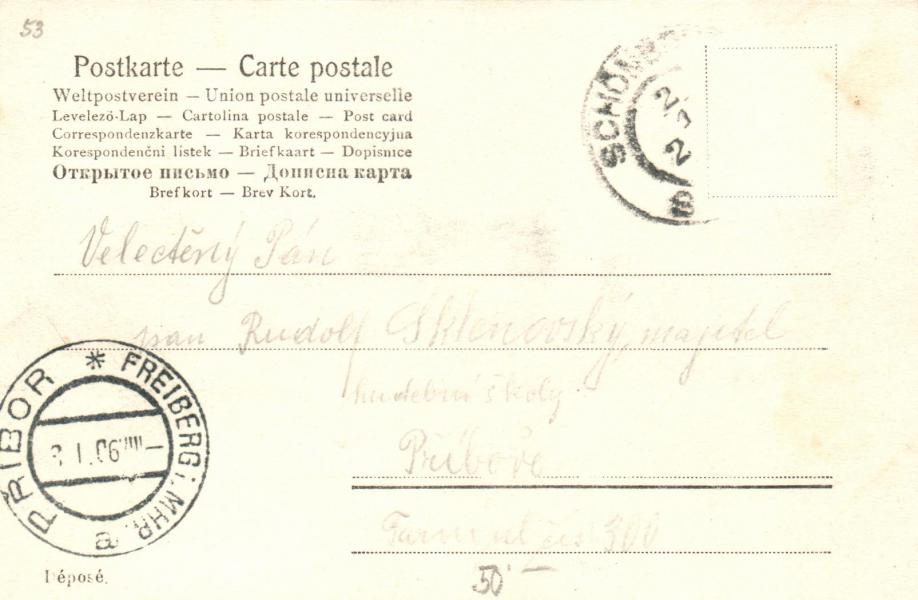 53
Postkarte — Carte postale
Weltpostverein — Union postale universelle
Levelező-Lap — Cartolina postale — Post card
Correspondenzkarte — Karta korespondencyjna
Korespondenčni listek — Briefkaart — Dopisnice
Открытое письмо — Дописна карта
Brefkort — Brev Kort.
Velectěný Pán
pan Rudolf Sklenovský, majitel
hudební školy
Příboře
čís 300
PŘÍBOR * FREIBERG i. MHR.
a
Déposé.
50